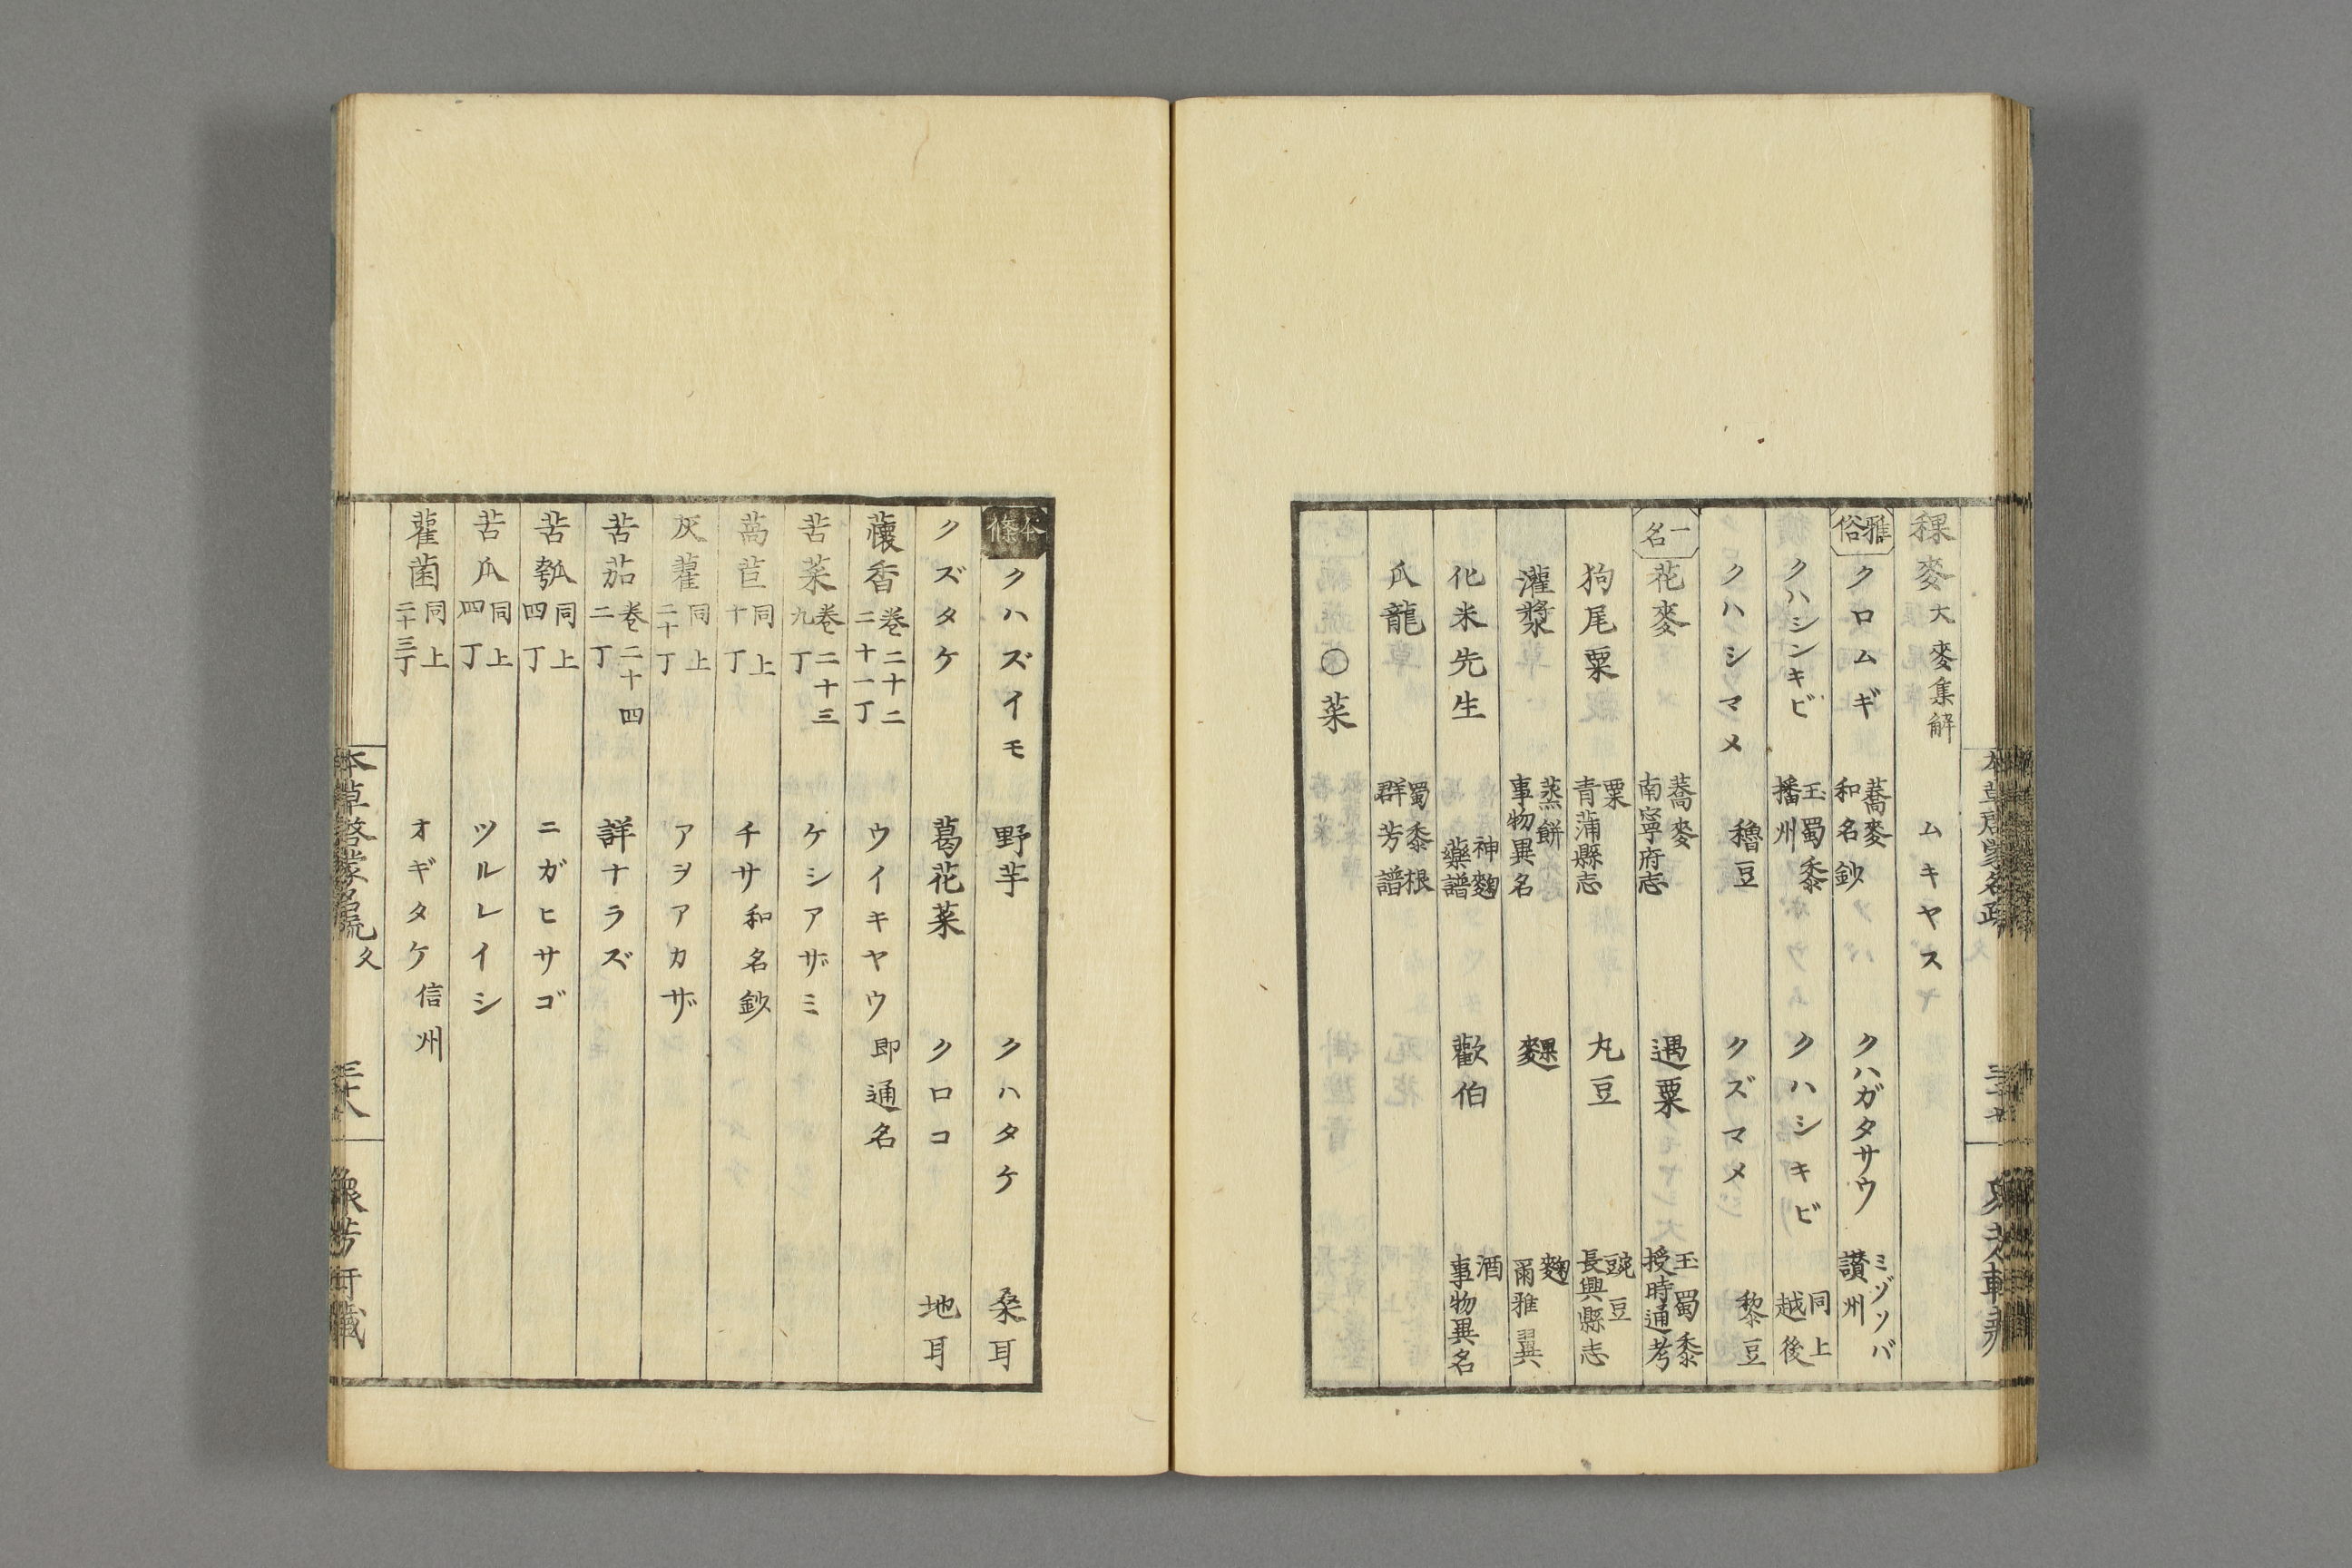 稞麥 大麥集解 ムキヤス
雅俗 クロムギ 蕎麥 和名鈔 クハガタサウ ミゾソバ 讃州
クハシンキビ 玉蜀黍 播州 クハシキビ 同上 越後
クハシマメ 穭豆 クズマメ 黎豆
一名 花麥 蕎麥 南寧府志 遇粟 玉蜀黍 授時通考
狗尾粟 粟 青蒲縣志 丸豆 豌豆 長興縣志
灌漿 蒸餅 事物異名 麳 麴 爾雅翼
化米先生 神麴 藥譜 歡伯 酒 事物異名
爪龍 蜀黍根 群芳譜
○菜
本條 クハズイモ 野芋 クハタケ 桑耳
クズタケ 葛花菜 クロコ 地耳
蘹香 巻二十二 二十一丁 ウイキヤウ 即通名
苦菜 巻二十三 九丁 ケシアザミ
萵苣 同上 十丁 チサ 和名鈔
灰藋 同上 二十丁 アヲアカザ
苦茄 巻二十四 二丁 詳ナラズ
苦瓠 同上 四丁 ニガヒサゴ
苦瓜 同上 四丁 ツルレイシ
雚菌 同上 二十三丁 オギタケ 信州
本草啓蒙名疏 久 三十八 衆芳軒藏